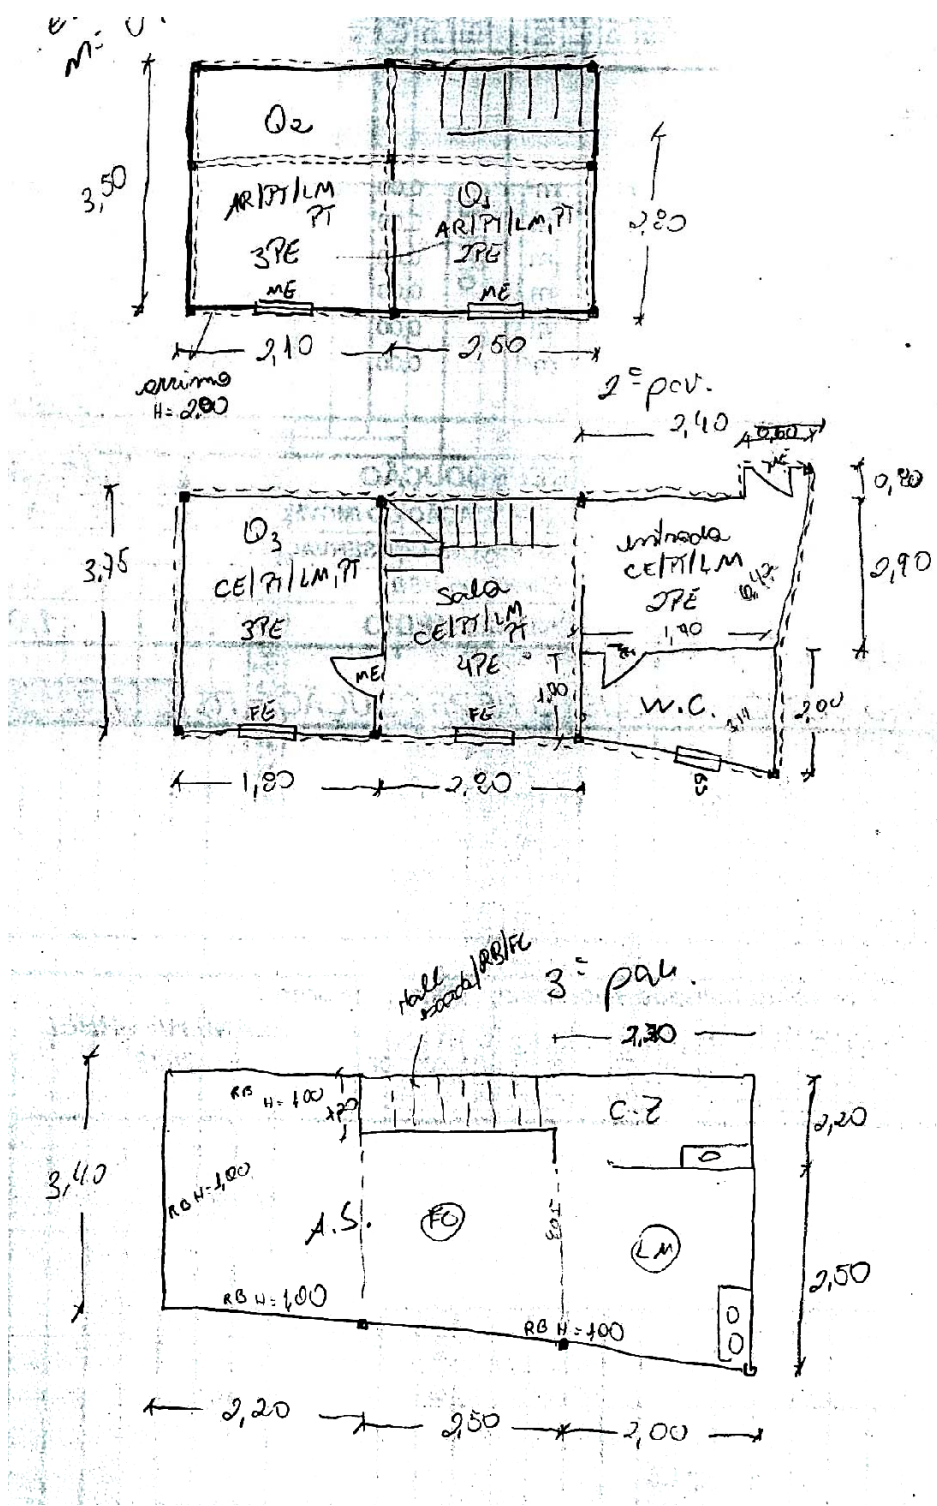 M=
3,50
Q2
AR/PT/LM
PT
3PE
ME
Q1
AR/PT/LM, PT
2PE
ME
2,80
2,10
2,50
arrimo
H=2,00
2º pav.
2,40
0,60
ME
0,80
3,75
Q3
CE/PT/LM, PT
3PE
ME
FE
sala
CE/PT/LM
PT
4PE
1,00
FE
entrada
CE/PT/LM
2PE
1,90
2,90
W.C.
3,14
2,00
1,80
2,80
Hall
escada/RB/FC
3º pav.
2,30
RB H=1,00
1,20
C.Z
2,20
3,40
RB H=1,00
A.S.
FC
LM
2,50
RB H=1,00
RB H=1,00
2,20
2,50
2,00